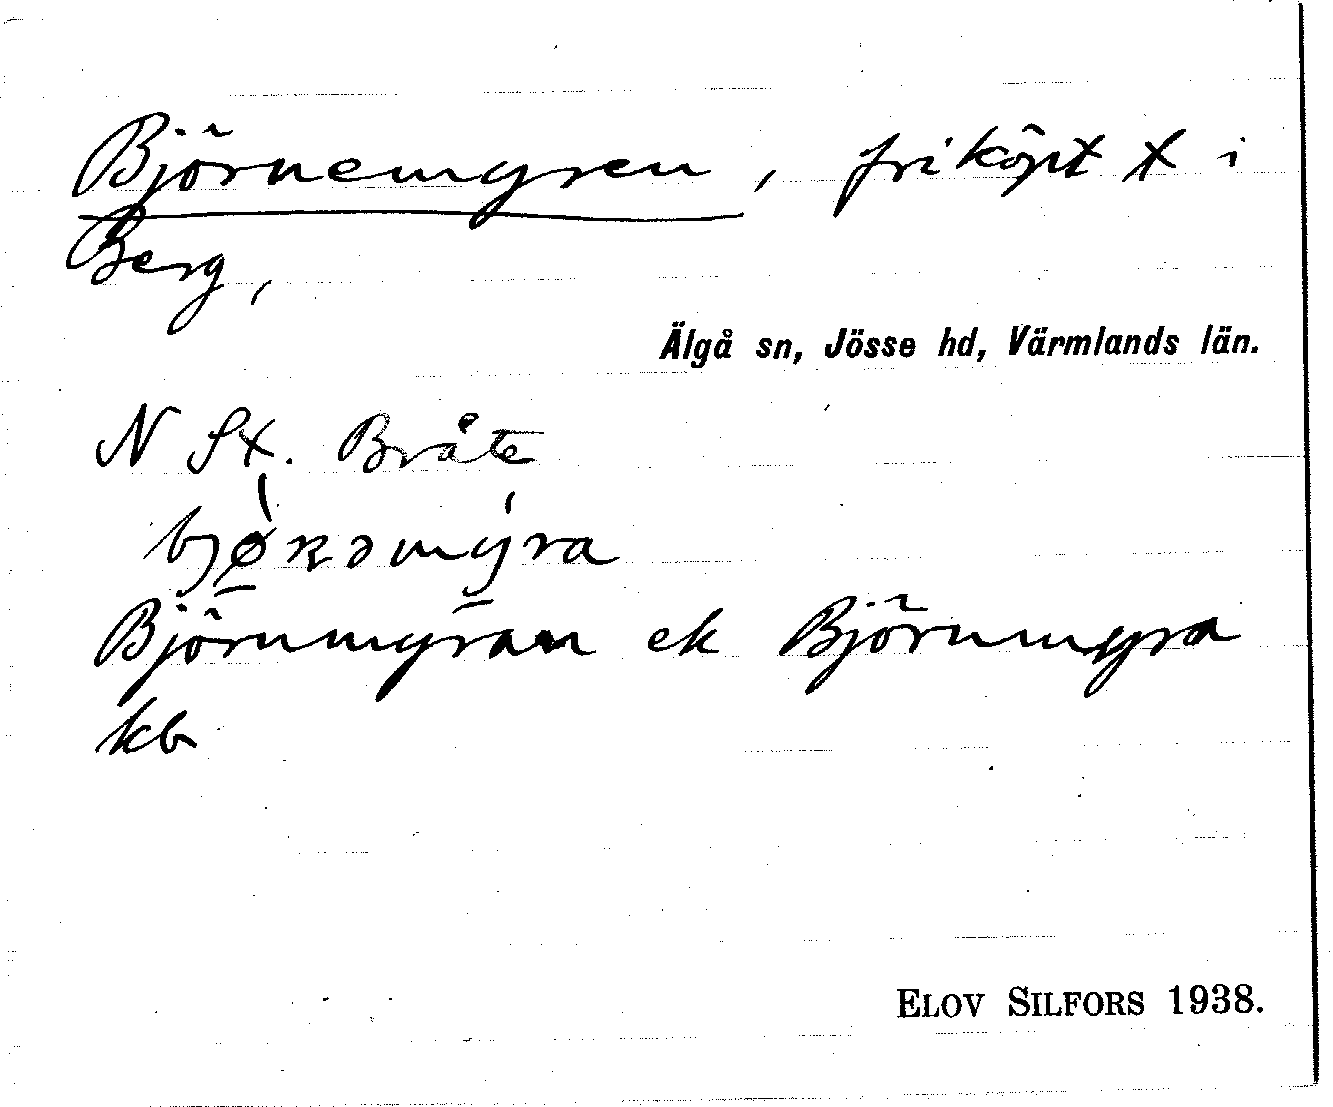 Björnemyren, friköpt t i
Berg,
Älgå sn, Jösse hd, Värmlands län.
N St. Bråte
Björnmyran ek Björnmyra
kb
ELOV SILFORS 1938.